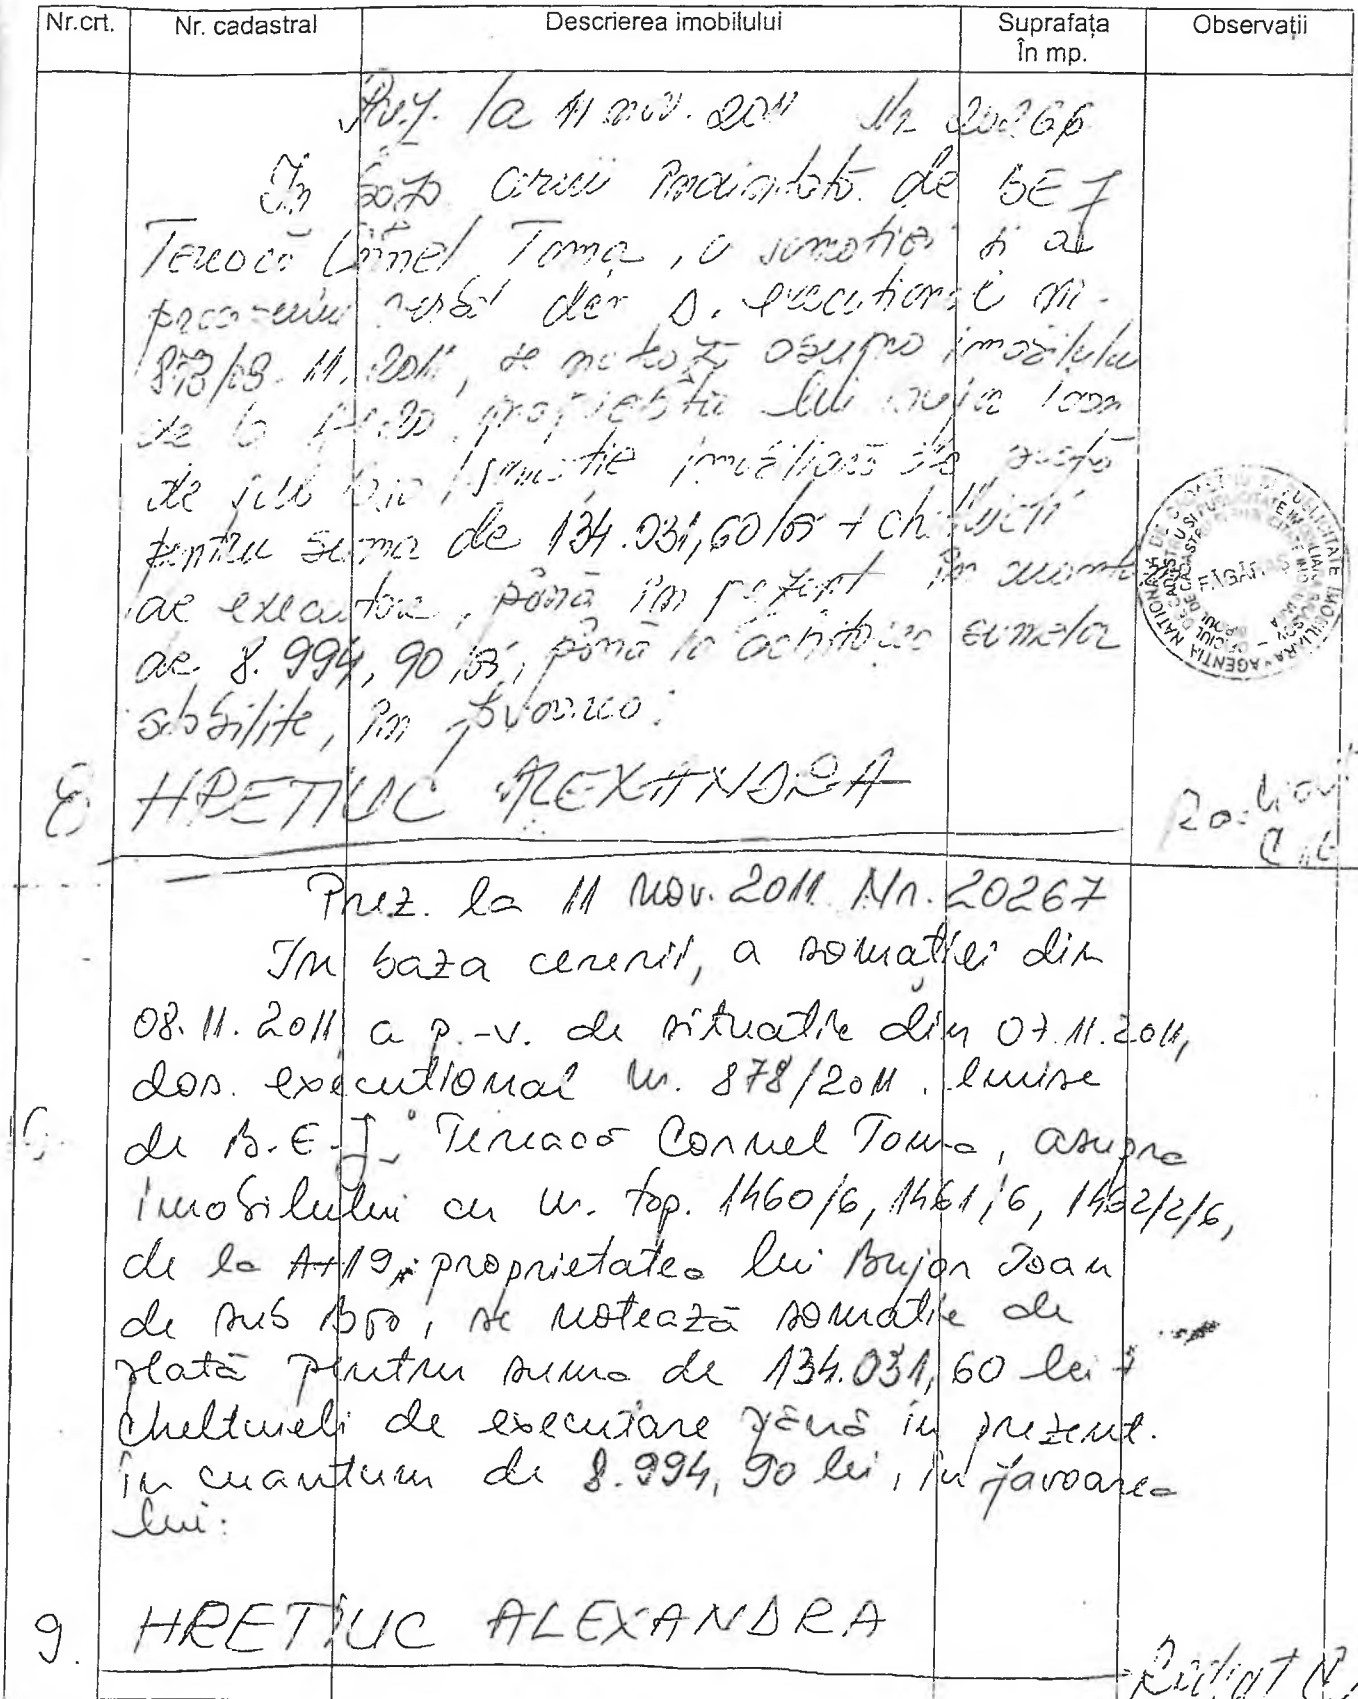 Nr.crt. Nr. cadastral Descrierea imobilului Suprafața în mp. Observații
la 11 nov. 2011 Nr 20266
In baza de BEJ
Cornel Toma, a somației și al
verbal der nr.
11. 2011, se notează asupra imobilului
de la proprietatea lui Ioan
de sub somație imobiliară de
pentru suma de 134.031,60 lei +
de executare, până în prezent în
de 8.994,90 lei, până la achitarea sumelor
stabilite, în favoarea:
8 HRETIUC ALEXANDRA
AGENȚIA NAȚIONALĂ DE CADASTRU ȘI PUBLICITATE IMOBILIARĂ
FĂGĂRAȘ
Prez. la 11 nov. 2011 Nr. 20267
In baza cererii, a somației din
08.11.2011 a p.-v. de situatie din 07.11.2011,
dos. executional nr. 878/2011 emise
de B.E.J. Cornel Toma, asupra
imobilului cu nr. top. 1460/6, 1461/6, 1462/2/6,
de la A+19, proprietatea lui Bujor Ioan
de sub se notează somatie de
plată pentru suma de 134.031,60 lei +
cheltuieli de executare până în prezent.
în cuantum de 8.994,90 lei, în favoarea
lui:
9. HRETIUC ALEXANDRA
Radiat